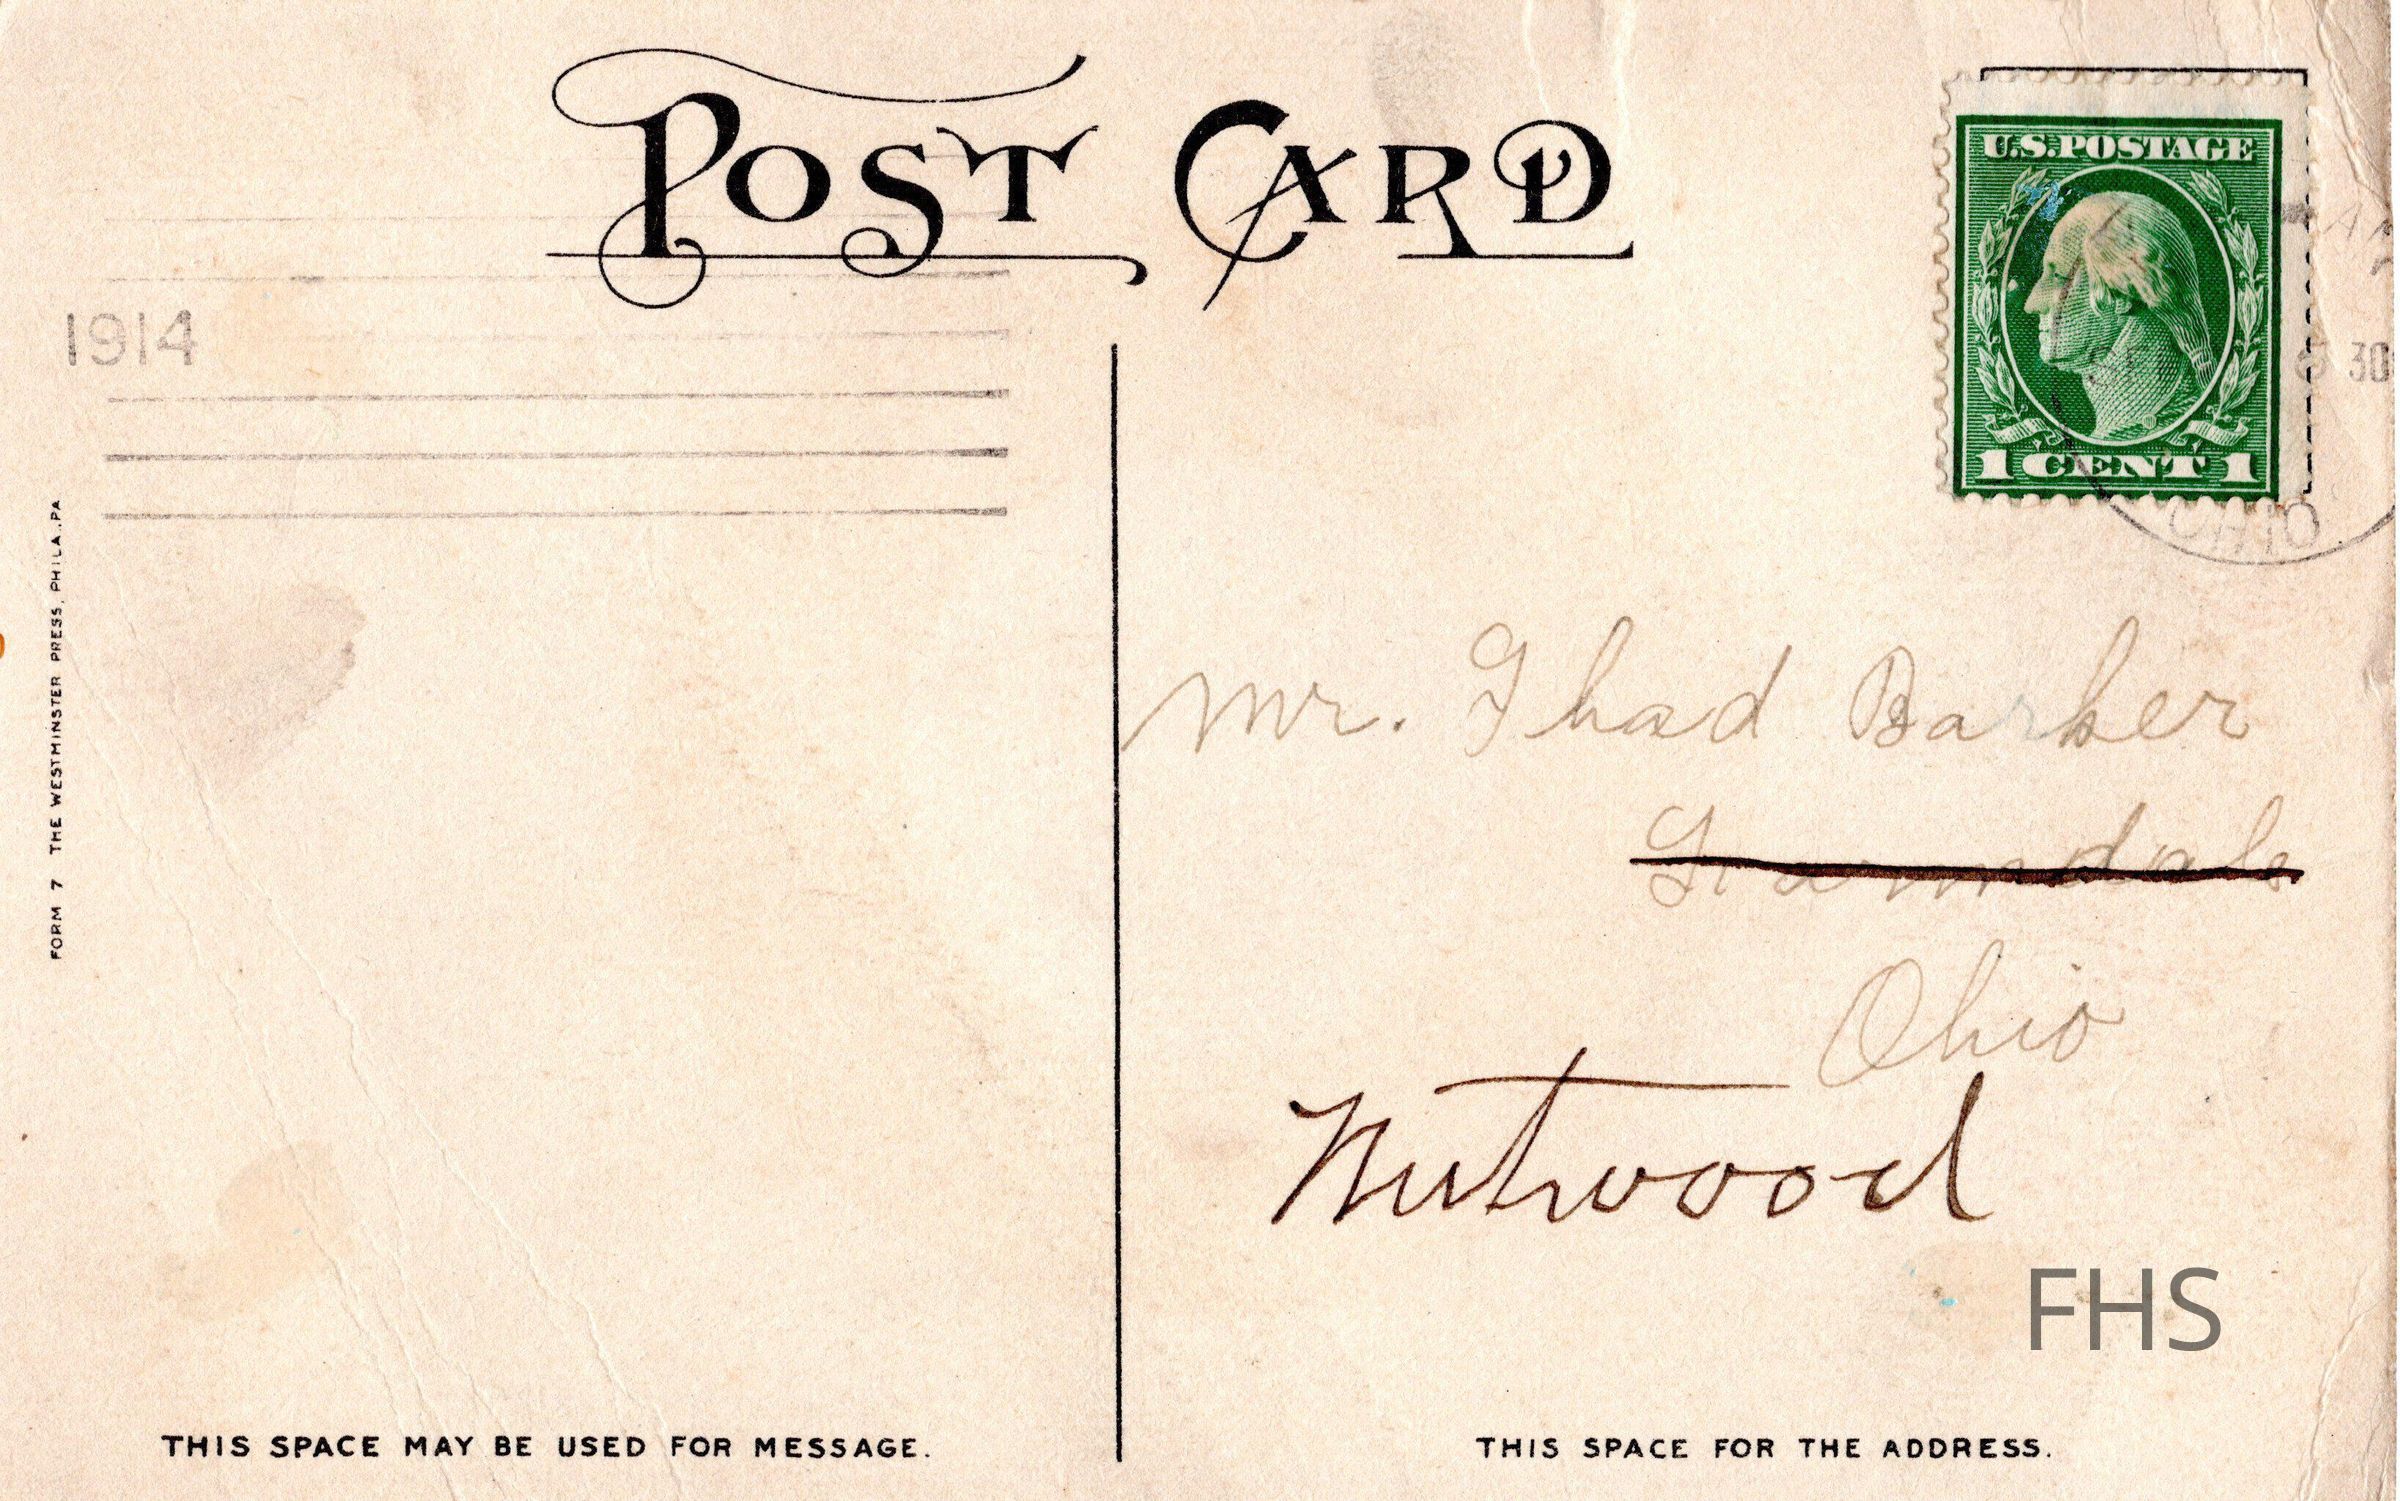 POST CARD
U.S. POSTAGE
1 CENT 1
1914
30
OHIO
FORM 7 THE WESTMINSTER PRESS, PHILA., PA
Mr. Thad Barber
Ohio
Nutwood
FHS
THIS SPACE MAY BE USED FOR MESSAGE.
THIS SPACE FOR THE ADDRESS.